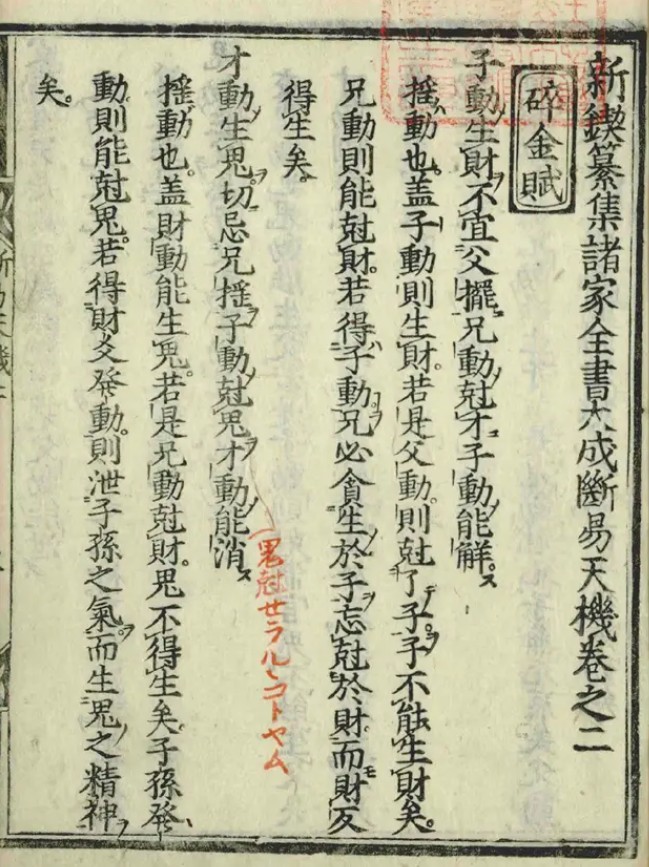 新鍥纂集諸家全書大成斷易天機卷之二
碎金賦
子動生財不宜父擺兄動尅才子動能解
搖動也盖子動則生財若是父動則尅了子子不能生財矣
兄動則能尅財若得子動兄必貪生於子忘尅於財而財反
得生矣
才動生鬼切忌兄揺子動尅鬼才動能消
揺動也盖財動能生鬼若是兄動尅財鬼不得生矣子孫發
動則能尅鬼若得財爻發動則泄子孫之氣而生鬼之精神
矣
鬼尅セラルヽコトヤム